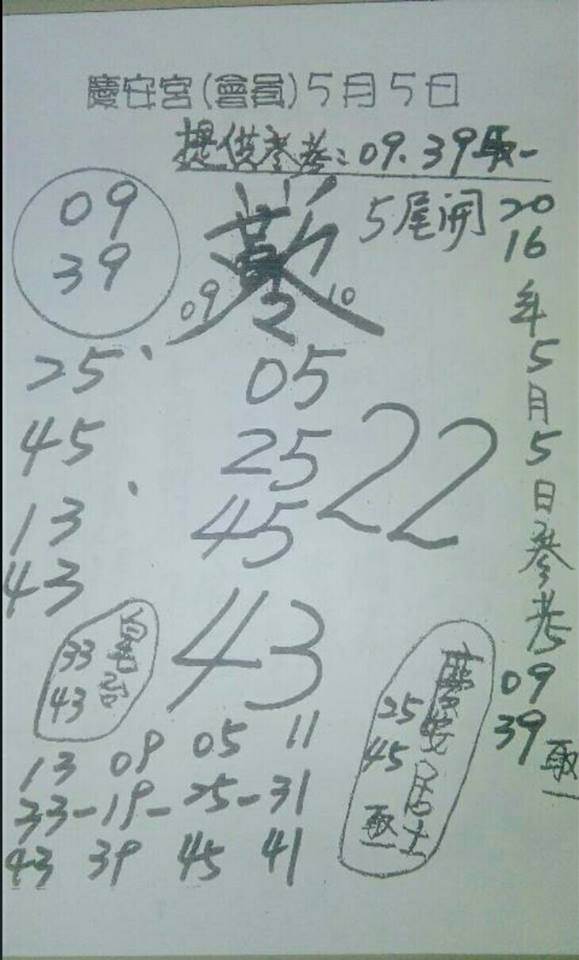 慶安宮(會員)5月5日
提供參考:09.39取一
09
39
5尾開
09
10
2016年5月5日參考09 39取一
25、
45
13、
43
05
25
45
22
43
33
43
慶安居士
25
45
取一
13 09 05 11
33-19-25-31
43 39 45 41